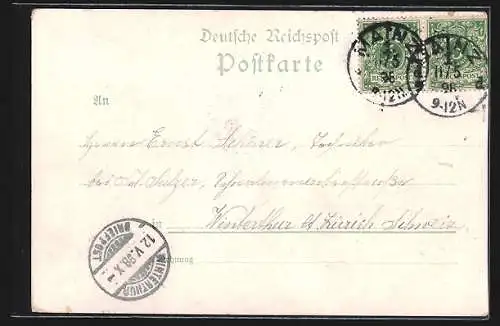 Deutsche Reichspost
Postkarte
MAINZ
11/5
98
9-12N
MAINZ
11/5
98
9-12N
REICHSPOST
An
Herrn Ernst Techniker
bei Sulzer,
in Winterthur b/ Zürich Schweiz
Wohnung
BRIEFPOST
12.V.98.X
WINTERTHUR